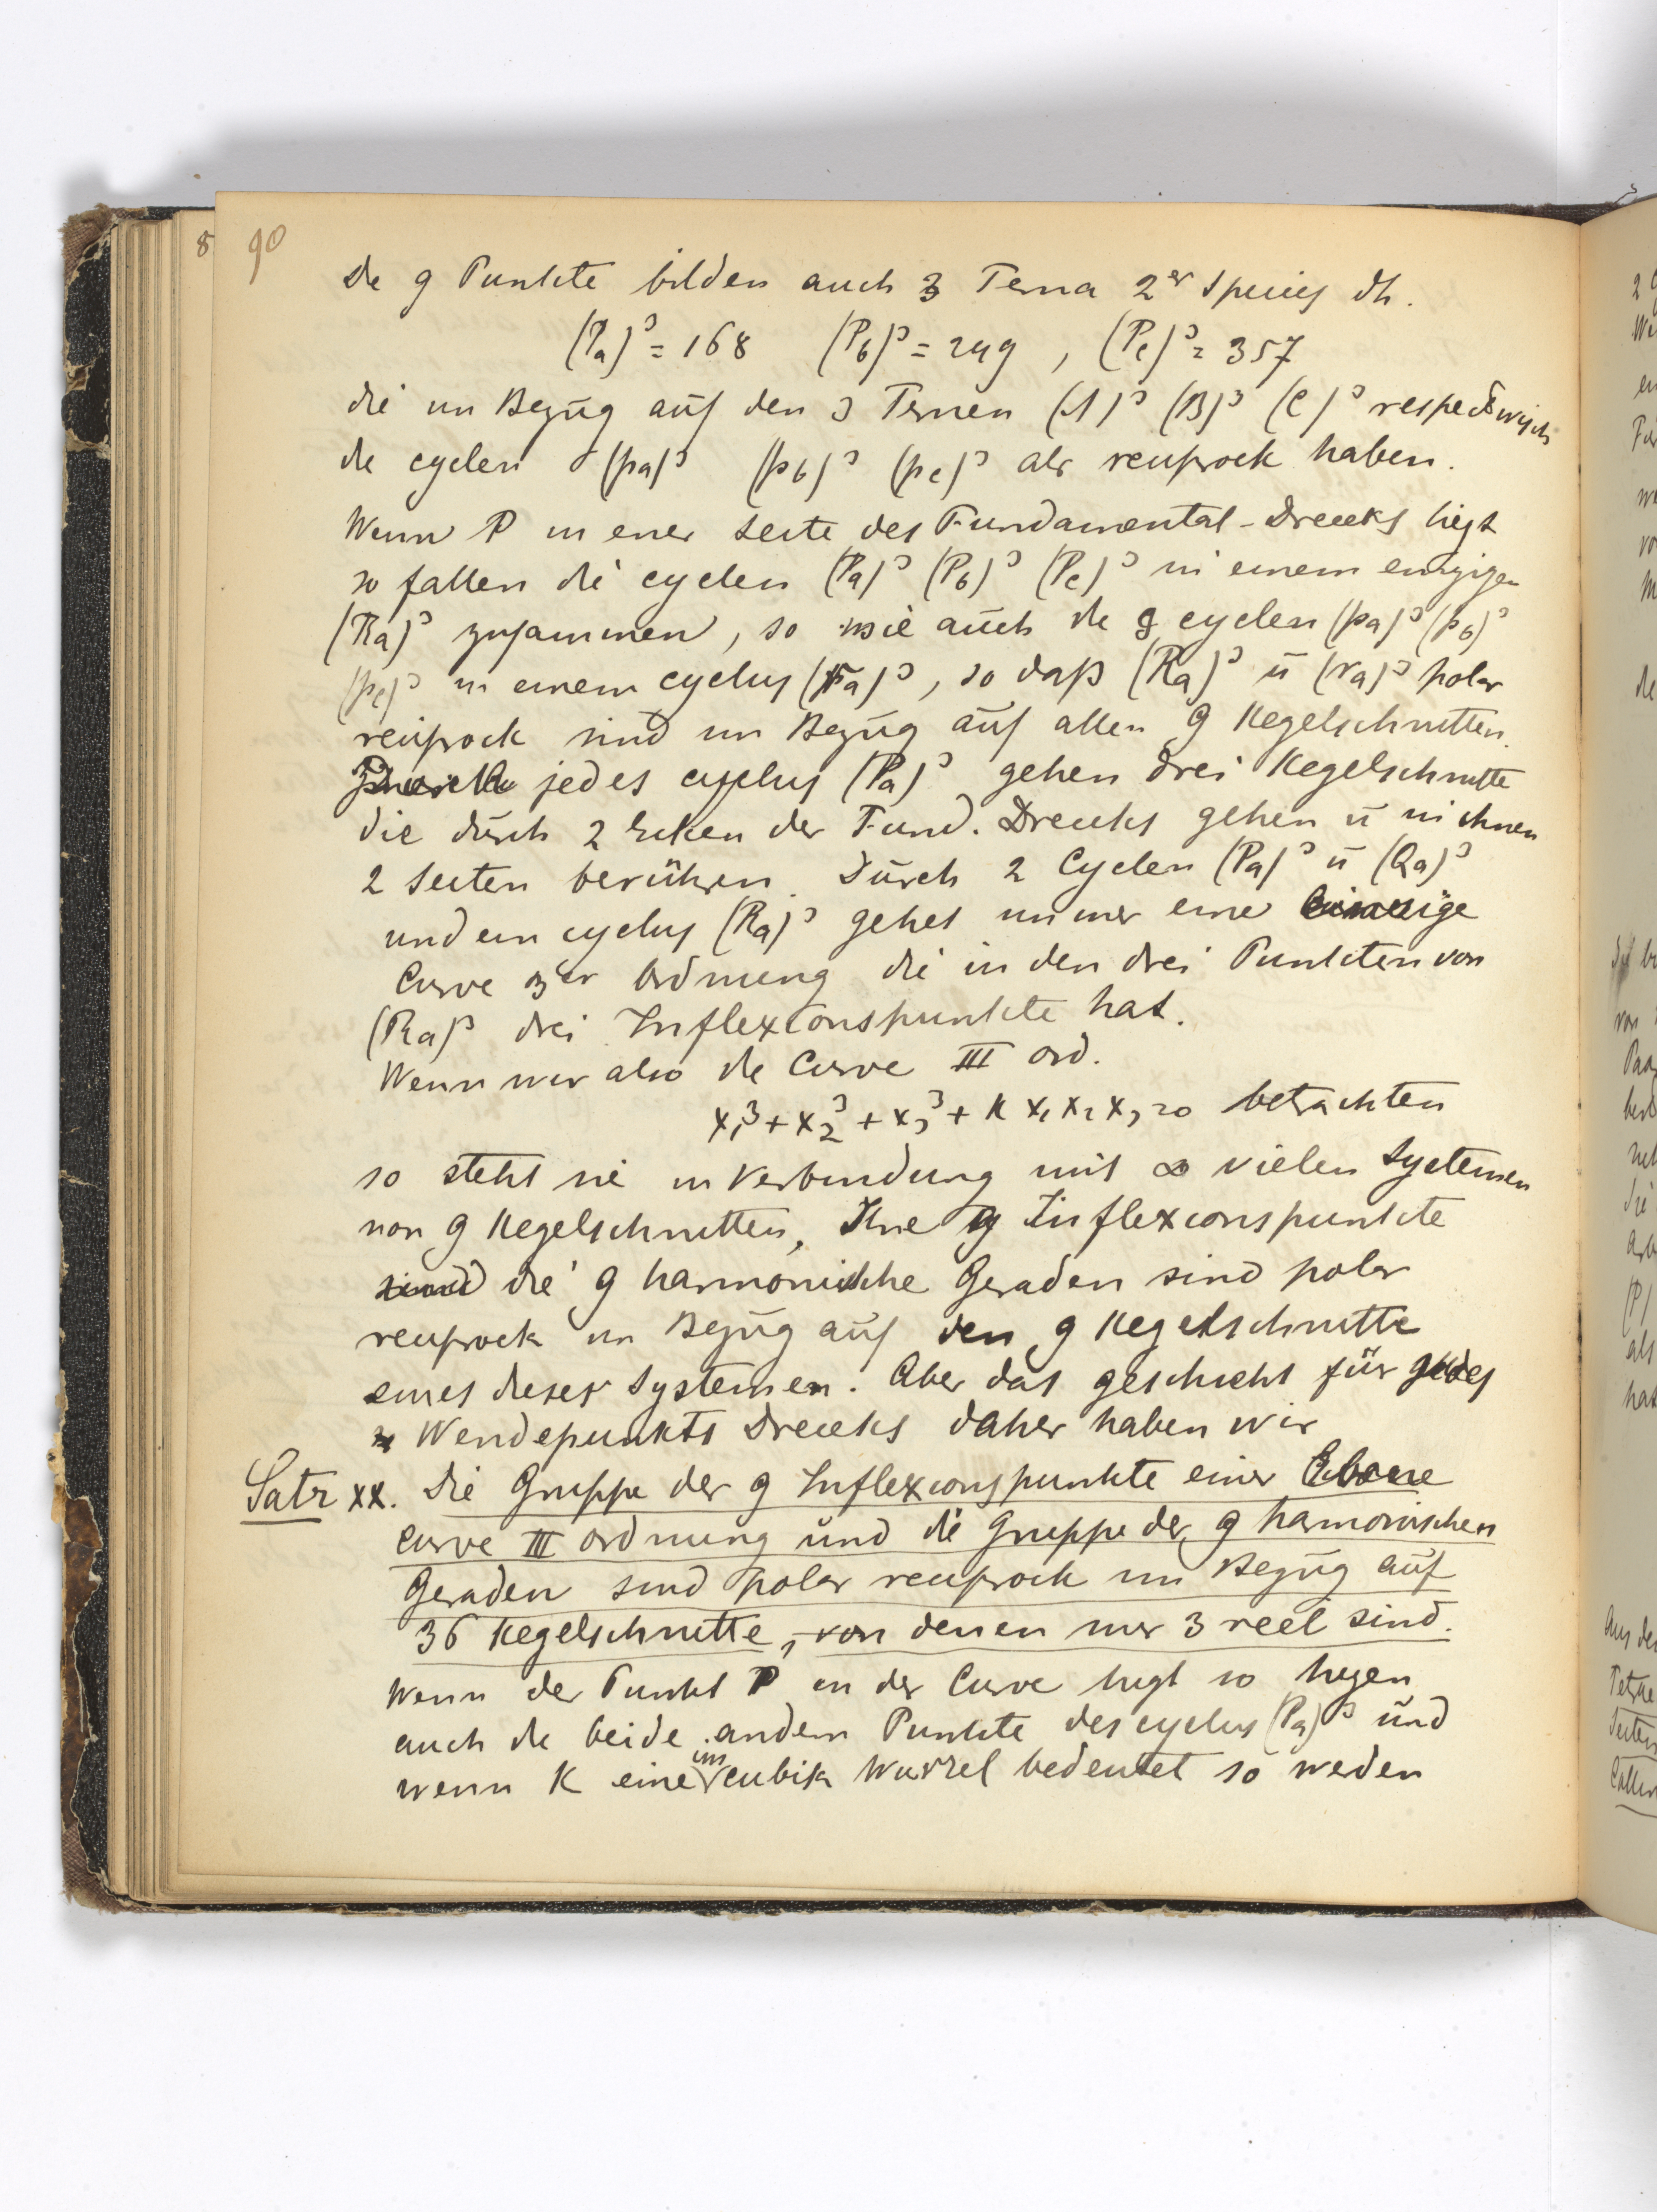 8 90
De 9 Punkte bilden auch 3 Terna 2er Species dh.
(Pa)³ = 168 (Pb)³ = 249 , (Pc)³ = 357
die im Bezug auf den 3 Ternen (A)³ (B)³ (C)³ respectivisch
de cyclen (pa)³ (pb)³ (pc)³ als reciprock haben.
Wenn P in einer Seite des Fundamental-Dreiecks liegt
so fallen die cyclen (Pa)³ (Pb)³ (Pc)³ in einem einzigen
(Ra)³ zusammen, so wie auch de 9 cyclen (pa)³ (pb)³
(pc)³ in einem cyclus (ra)³, so daß (Ra)³ ū (ra)³ polar
reciprock sind im Bezug auf allen 9 Kegelschnitten.
Durch jedes cyclus (Pa)³ gehen drei Kegelschnitte
die durch 2 Ecken der Fund. Dreiecks gehen ū in ihnen
2 Seiten berühren. Durch 2 Cyclen (Pa)³ ū (Qa)³
und ein cyclus (Ra)³ gehet immer eine einzige
Curve 3er Ordnung die in den drei Punkten von
(Ra)³ drei Inflexionspunkte hat.
Wenn wir also de Curve III Ord.
x₁³ + x₂³ + x₃³ + K x₁ x₂ x₃ = 0 betrachten
so steht sie in Verbindung mit ∞ vielen Systemen
von 9 Kegelschnitten, Ihre 9 Inflexionspunkte
sind die 9 harmonische Geraden sind polar
reciprock im Bezug auf den 9 Kegelschnitte
eines dieser Systemen. Aber das geschieht für jedes
Wendepunkts Dreiecks daher haben wir
Satz XX. Die Gruppe der 9 Inflexionspunkte einer Ebene
Curve III Ordnung und die Gruppe der 9 harmonischen
Geraden sind polar reciprock im Bezug auf
36 Kegelschnitte, von denen nur 3 reel sind.
Wenn der Punkt P in der Curve liegt so liegen
auch de beide andern Punkte des cyclus (Pa)³ und
im
wenn K eine cubik Wurzel bedeutet so werden